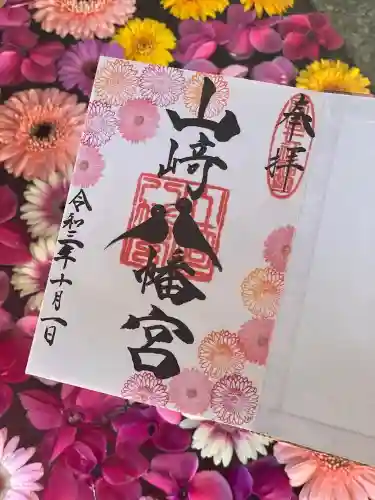 奉拝
山崎八幡宮
令和三年十月一日